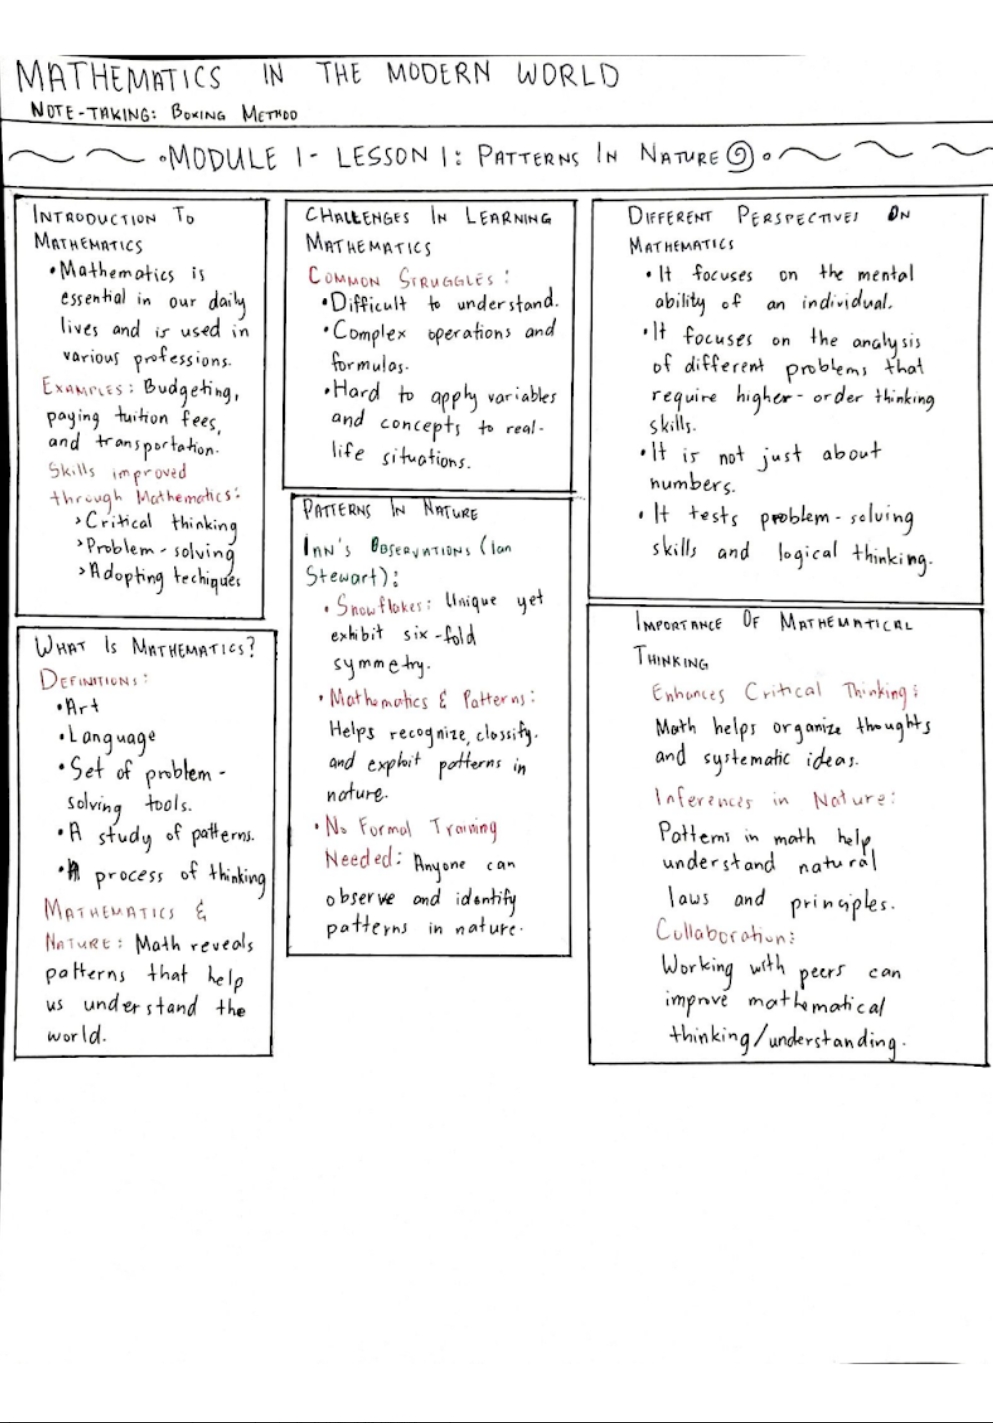 MATHEMATICS IN THE MODERN WORLD
NOTE-TAKING: BOXING METHOD
•MODULE 1- LESSON 1: PATTERNS IN NATURE
INTRODUCTION TO
MATHEMATICS
•Mathematics is
essential in our daily
lives and is used in
various professions.
EXAMPLES: Budgeting,
paying tuition fees,
and transportation.
Skills improved
through Mathematics:
>Critical thinking
>Problem-solving
>Adopting techiques
WHAT IS MATHEMATICS?
DEFINITIONS:
•Art
•Language
•Set of problem-
solving tools.
•A study of patterns.
•A process of thinking
MATHEMATICS &
NATURE: Math reveals
patterns that help
us understand the
world.
CHALLENGES IN LEARNING
MATHEMATICS
COMMON STRUGGLES:
•Difficult to understand.
•Complex operations and
formulas.
•Hard to apply variables
and concepts to real-
life situations.
PATTERNS IN NATURE
IAN'S OBSERVATIONS (Ian
Stewart):
•Snowflakes: Unique yet
exhibit six-fold
symmetry.
•Mathematics & Patterns:
Helps recognize, classify.
and exploit patterns in
nature.
•No Formal Training
Needed: Anyone can
observe and identify
patterns in nature.
DIFFERENT PERSPECTIVES ON
MATHEMATICS
•It focuses on the mental
ability of an individual.
•It focuses on the analysis
of different problems that
require higher-order thinking
skills.
•It is not just about
numbers.
•It tests problem-solving
skills and logical thinking.
IMPORTANCE OF MATHEMATICAL
THINKING
Enhances Critical Thinking:
Math helps organize thoughts
and systematic ideas.
Inferences in Nature:
Patterns in math help
understand natural
laws and principles.
Collaboration:
Working with peers can
improve mathematical
thinking/understanding.